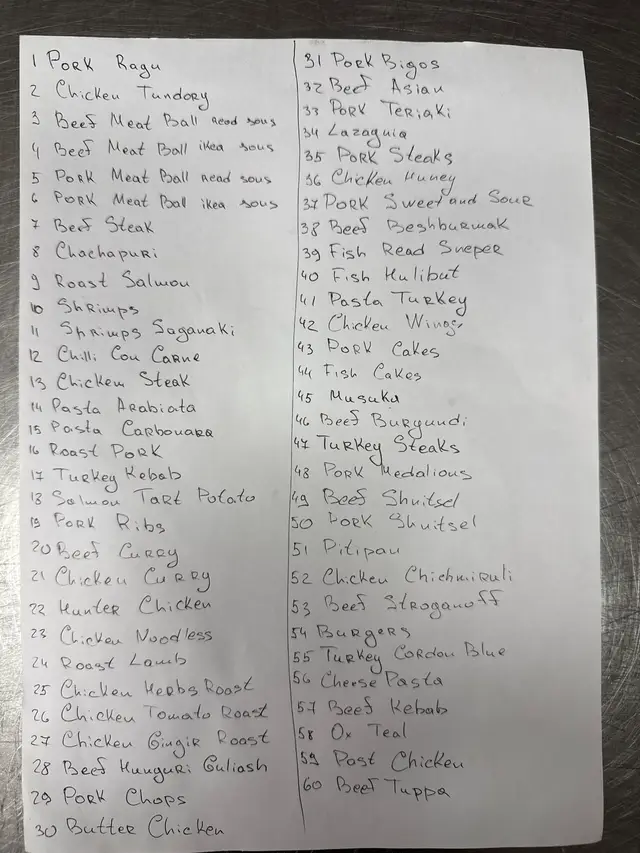 1 Pork Ragu
2 Chicken Tundory
3 Beef Meat Ball Read sous
4 Beef Meat Ball ikea sous
5 Pork Meat Ball read sous
6 Pork Meat Ball ikea sous
7 Beef Steak
8 Chachapuri
9 Roast Salmon
10 Shrimps
11 Shrimps Saganaki
12 Chilli Con Carne
13 Chicken Steak
14 Pasta Arabiata
15 Pasta Carbonara
16 Roast Pork
17 Turkey Kebab
18 Salmon Tart Potato
19 Pork Ribs
20 Beef Curry
21 Chicken Curry
22 Hunter Chicken
23 Chicken Noodless
24 Roast Lamb
25 Chicken Herbs Roast
26 Chicken Tomato Roast
27 Chicken Gingir Roast
28 Beef Hunguri Guliash
29 Pork Chops
30 Butter Chicken
31 Pork Bigos
32 Beef Asian
33 Pork Teriaki
34 Lazagnia
35 Pork Steaks
36 Chicken Huney
37 Pork Sweet and Sour
38 Beef Beshburmak
39 Fish Read Sneper
40 Fish Hulibut
41 Pasta Turkey
42 Chicken Wings
43 Pork Cakes
44 Fish Cakes
45 Musaka
46 Beef Burgundi
47 Turkey Steaks
48 Pork Medalious
49 Beef Shnitsel
50 Pork Shnitsel
51 Pitipan
52 Chicken Chichmiruli
53 Beef Stroganoff
54 Burgers
55 Turkey Cordon Blue
56 Cheese Pasta
57 Beef Kebab
58 Ox Teal
59 Post Chicken
60 Beef Tuppa